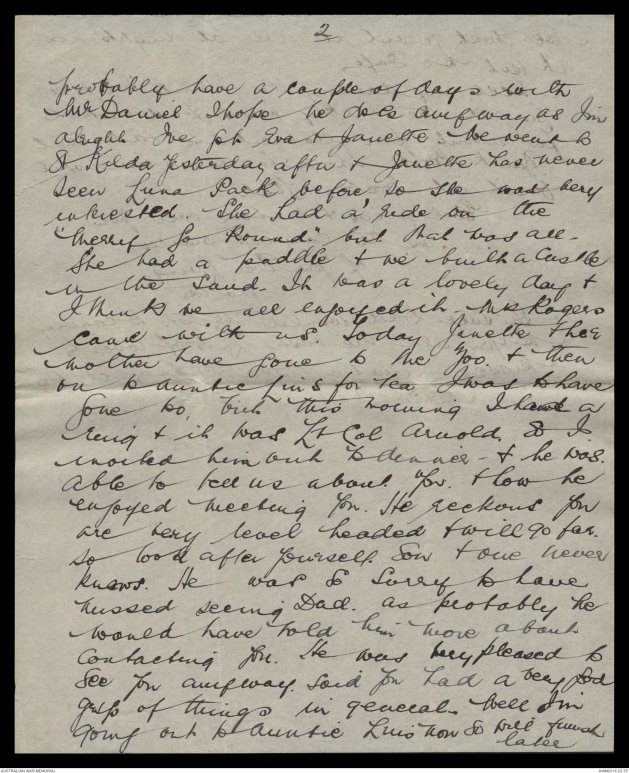 2
probably have a couple of days with
Mr Daniel I hope he does anyway as I'm
alright I've got Eva & Janette. We went to
St Kilda yesterday aftn & Janette has never
seen Luna Park before so she was very
interested. She had a ride on the
"Merry Go Round." but that was all.
She had a paddle & we built a Castle
in the sand. It was a lovely day &
I think we all enjoyed it. Mrs Rogers
came with us. Today Janette & her
mother have gone to the Zoo. & then
on to Auntie Lin's for tea I was to have
gone too, but this morning I had a
ring & it was Lt Col Arnold. So I
invited him out to dinner - & he was
able to tell us about you. & how he
enjoyed meeting you. He reckons you
are very level headed & will go far.
so look after yourself. Son & one never
knows. He was so sorry to have
missed seeing Dad. as probably he
would have told him more about
contacting you. He was very pleased to
see you anyway. Said you had a very good
grip of things in general. Well I'm
going out to Auntie Lin's now so will finish
later
AUSTRALIAN WAR MEMORIAL